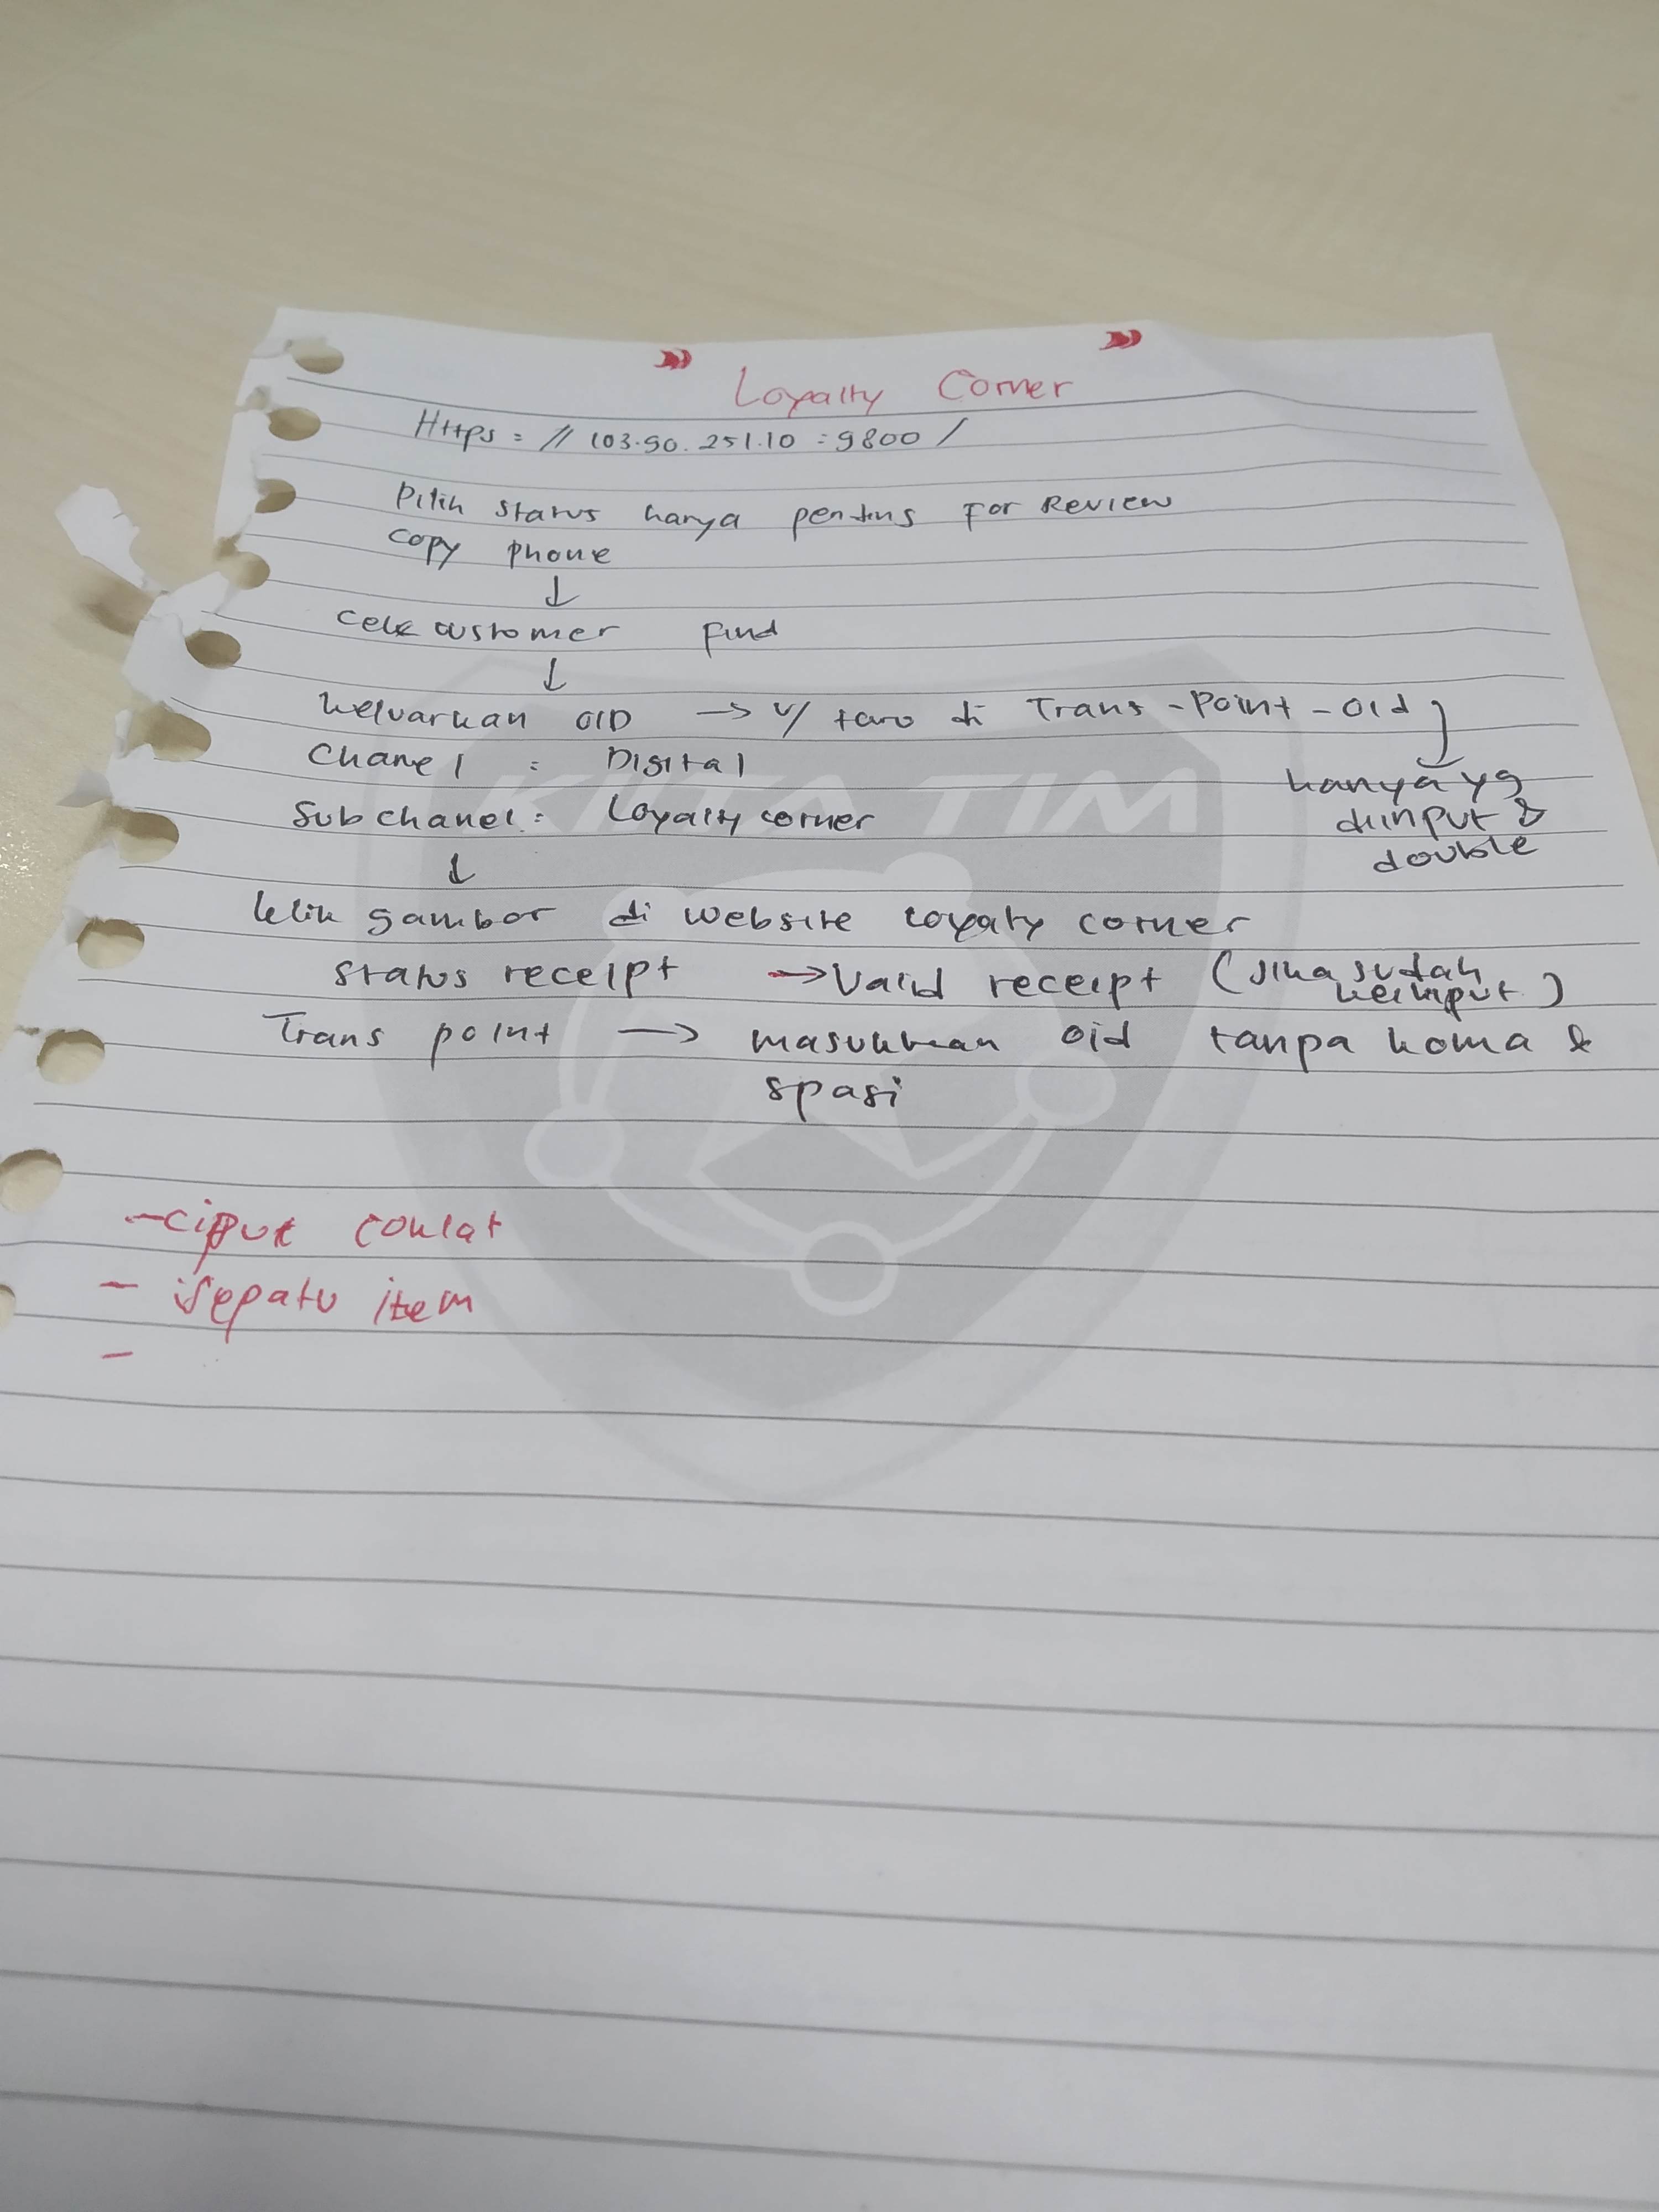 Loyalty Corner
Https = // 103.90.251.10 : 9800 /
Pilih status hanya pending For Review
copy phone
↓
cek customer find
↓
keluarkan OID → u/ taro di Trans - Point - Oid
Chanel : Digital
hanya yg
diinput &
double
Subchanel : Loyalty corner
↓
klik gambar di website loyalty corner
status receipt → Valid receipt (jika sudah
keinput)
Trans point → masukkan oid tanpa koma &
spasi
- ciput coklat
- sepatu item
-
KITA TIM